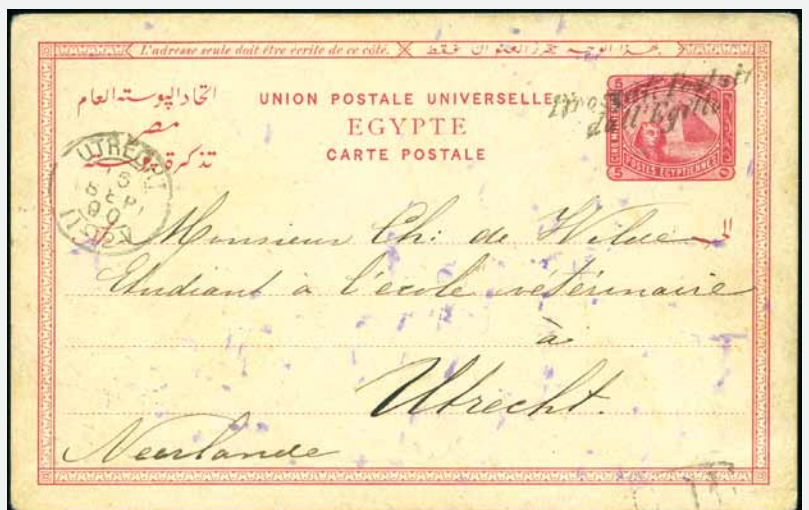 L'adresse seule doit être écrite de ce côté. هذا الوجه محرر العنوان فقط
اتحاد البوسته العام
مصر
تذكرة بوسته
UNION POSTALE UNIVERSELLE
EGYPTE
CARTE POSTALE
5 5
POSTES EGYPTIENNES
5
UTRECHT
SEP
90
Monsieur Ch: de
Etudiant à l'école vétérinaire
à
Utrecht.
Néerlande